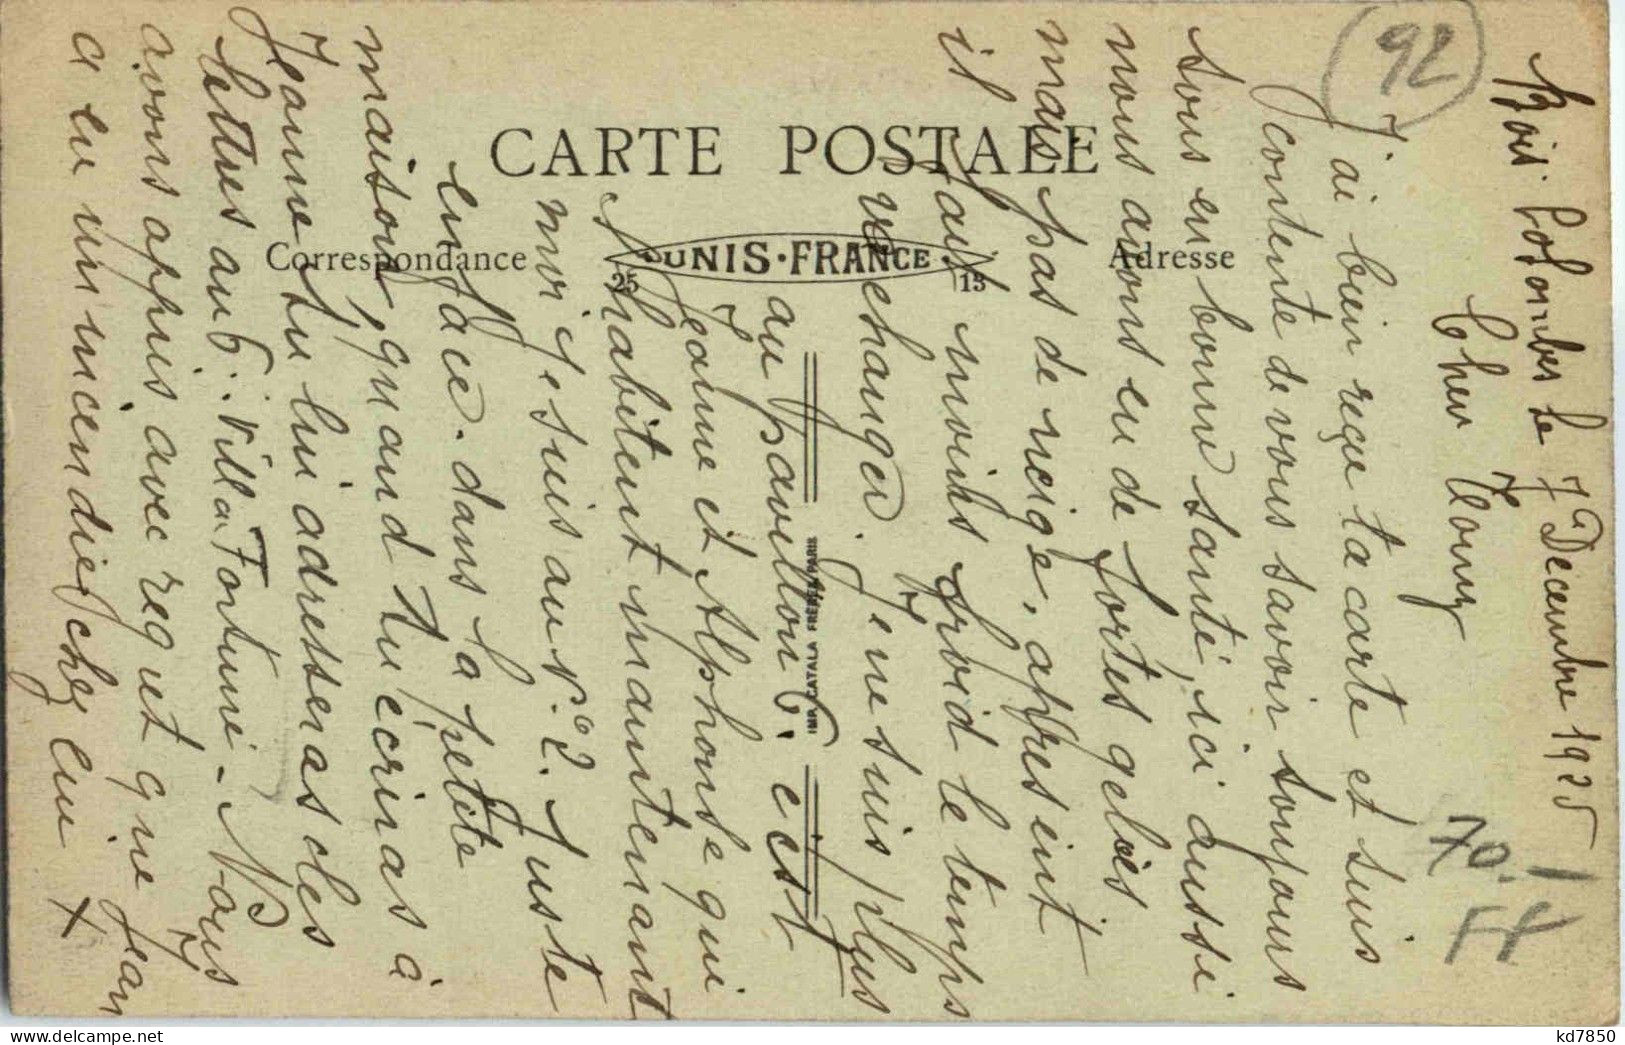 CARTE POSTALE
Correspondance
Adresse
UNIS·FRANCE
25
13
IMP. CATALA FRÈRES PARIS
92
70.-
FF
Bois Colombes le 7 Décembre 1925
Cher
J'ai bien reçu ta carte et suis
contente de vous savoir toujours
tous en bonne santé, ici aussi
nous avons eu de fortes gelées
mais pas de neige, après cint
il fait moins froid le temps
va changer. Je ne suis plus
au pavillon 6. c'est
Jeanne et Alphonse qui
l'habitent maintenant
moi je suis au n° 2. Juste
en face. dans la petite
maison, quand tu écriras à
Jeanne tu lui adresseras des
lettres au 6. Villa Fortuné - Nous
avons appris avec regret que Jean
a eu un incendie chez lui X
kd7850